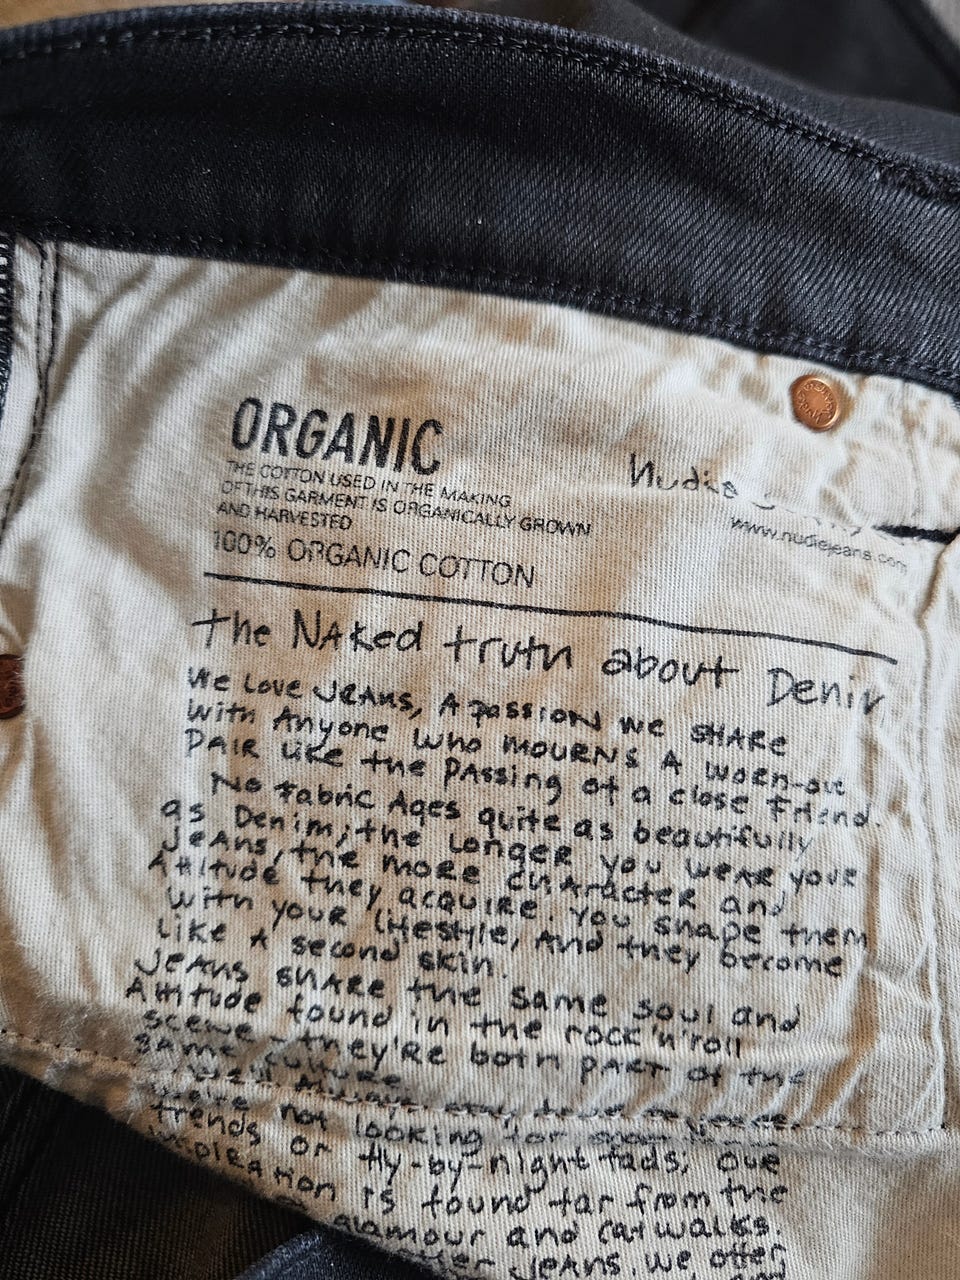 ORGANIC
THE COTTON USED IN THE MAKING
OF THIS GARMENT IS ORGANICALLY GROWN
AND HARVESTED
100% ORGANIC COTTON
Nudie
www.nudiejeans.com
the NAKed truth about Denim
We Love JEANS, A passion we SHARe
with Anyone who MOURNS A worn-out
PAIR like the PAssing of a close friend.
No fabric Ages quite as beautifully
as Denim; the longer you weAR your
JeANs, the more chARacter and
Attitude they acquire. You shape them
with youR lifestyle, And they become
Like A second skin.
JeANs shARe the same soul and
Attitude found in the rock'n'roll
scene - they'Re both pARt of the
sAMe culture.
We'll Always stay true to
not looking for
trends or fly-by-night fads; our
inspiRAtion is found far from the
glamour and catwalks.
JeANs. We offer